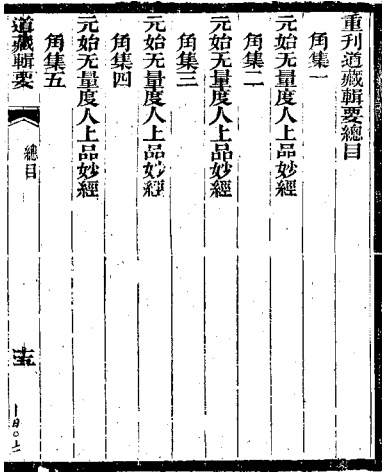 重刊道藏輯要總目
角集一
元始无量度人上品妙經
角集二
元始无量度人上品妙經
角集三
元始无量度人上品妙經
角集四
元始无量度人上品妙經
角集五
道藏輯要
總目